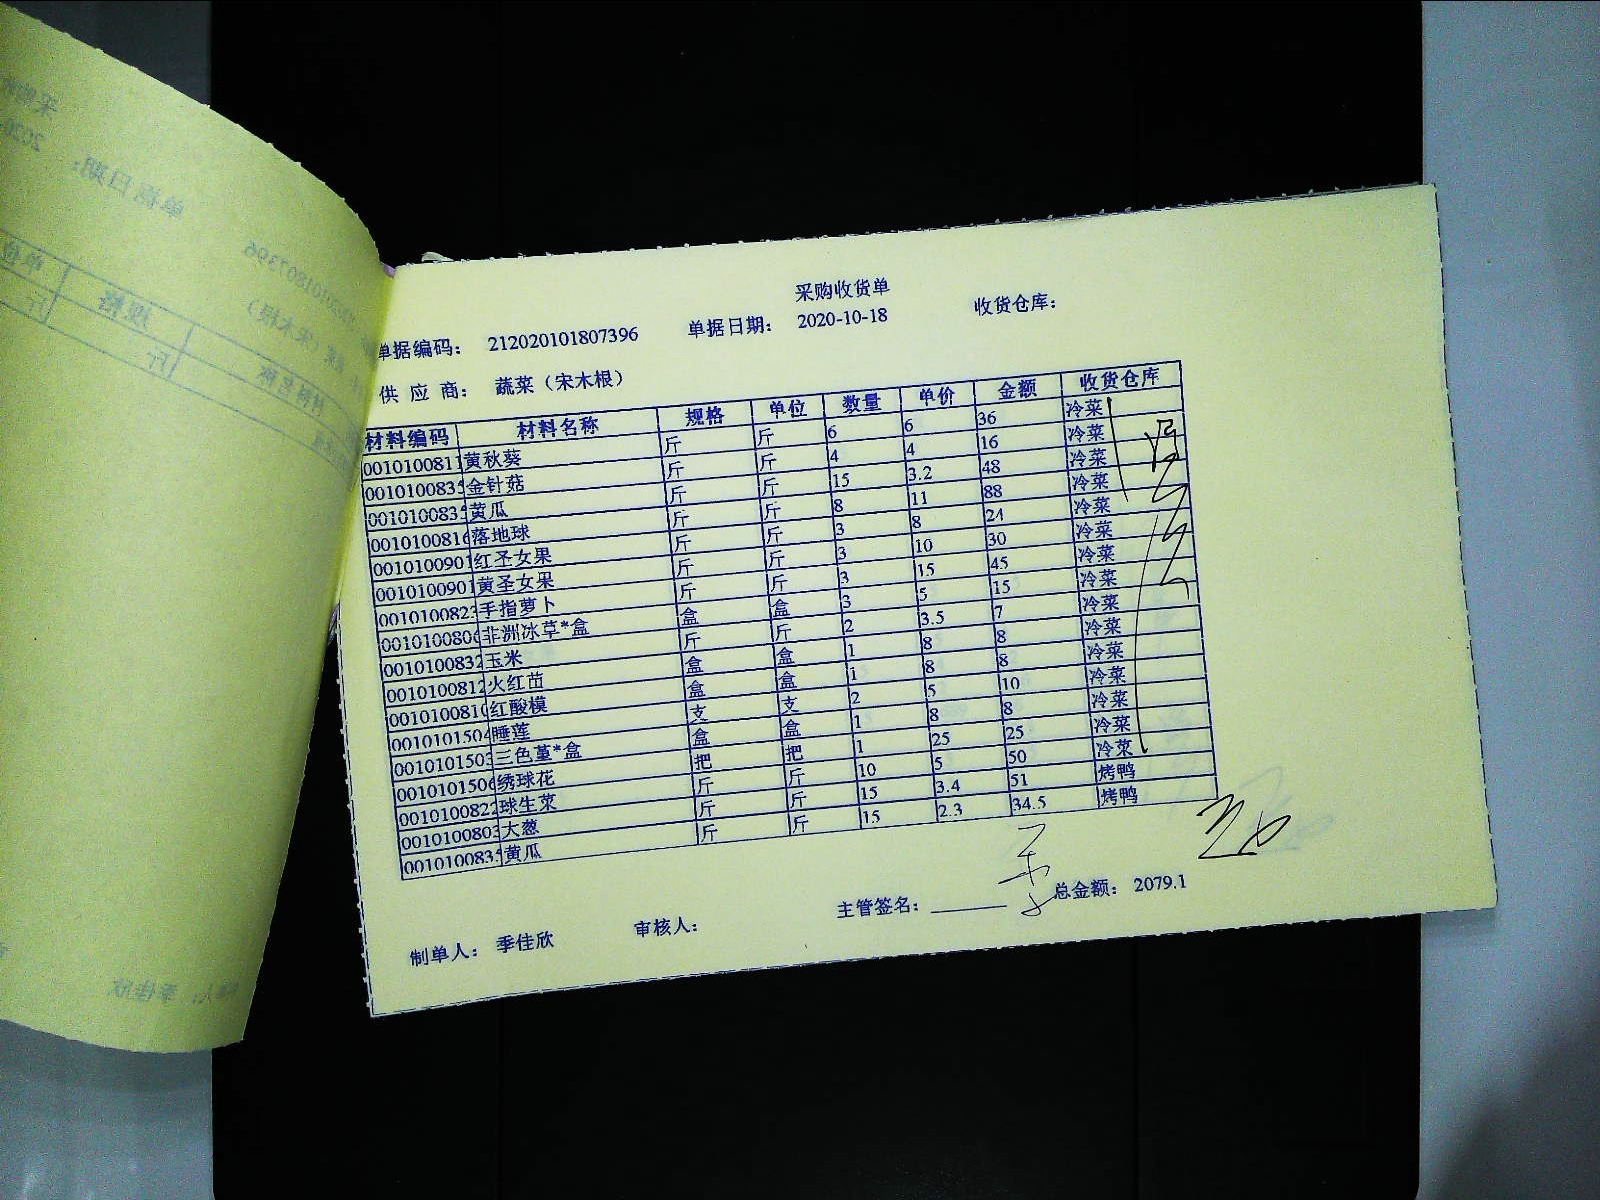 采购收货单
单据编码： 212020101807396 单据日期： 2020-10-18 收货仓库：
供 应 商： 蔬菜（宋木根）
材料编码 材料名称 规格 单位 数量 单价 金额 收货仓库
0010100811 黄秋葵 斤 斤 6 6 36 冷菜
001010083 金针菇 斤 斤 4 4 16 冷菜
001010083 黄瓜 斤 斤 15 3.2 48 冷菜
001010081 落地球 斤 斤 8 11 88 冷菜
001010090 红圣女果 斤 斤 3 8 24 冷菜
001010090 黄圣女果 斤 斤 3 10 30 冷菜
001010082 手指萝卜 斤 斤 3 15 45 冷菜
001010080 非洲冰草*盒 盒 盒 3 5 15 冷菜
001010083 玉米 斤 斤 2 3.5 7 冷菜
001010081 火红苗 盒 盒 1 8 8 冷菜
001010081 红酸模 盒 盒 1 8 8 冷菜
001010150 睡莲 支 支 2 5 10 冷菜
001010150 三色堇*盒 盒 盒 1 8 8 冷菜
001010150 绣球花 把 把 1 25 25 冷菜
001010082 球生菜 斤 斤 10 5 50 冷菜
001010080 大葱 斤 斤 15 3.4 51 烤鸭
001010083 黄瓜 斤 斤 15 2.3 34.5 烤鸭
制单人： 季佳欣 审核人： 主管签名： 总金额： 2079.1